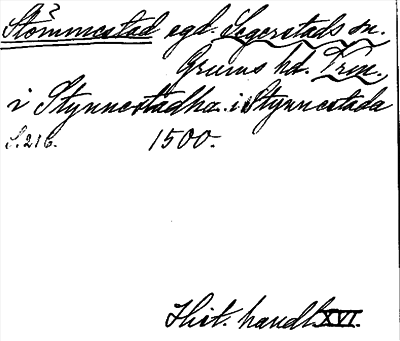 Stömmestad egd. Segerstads sn.
Grums hd. Vrm.
i Stynnestadha. i Stynnestada
S. 216. 1500.
Hist. handl. XVI.